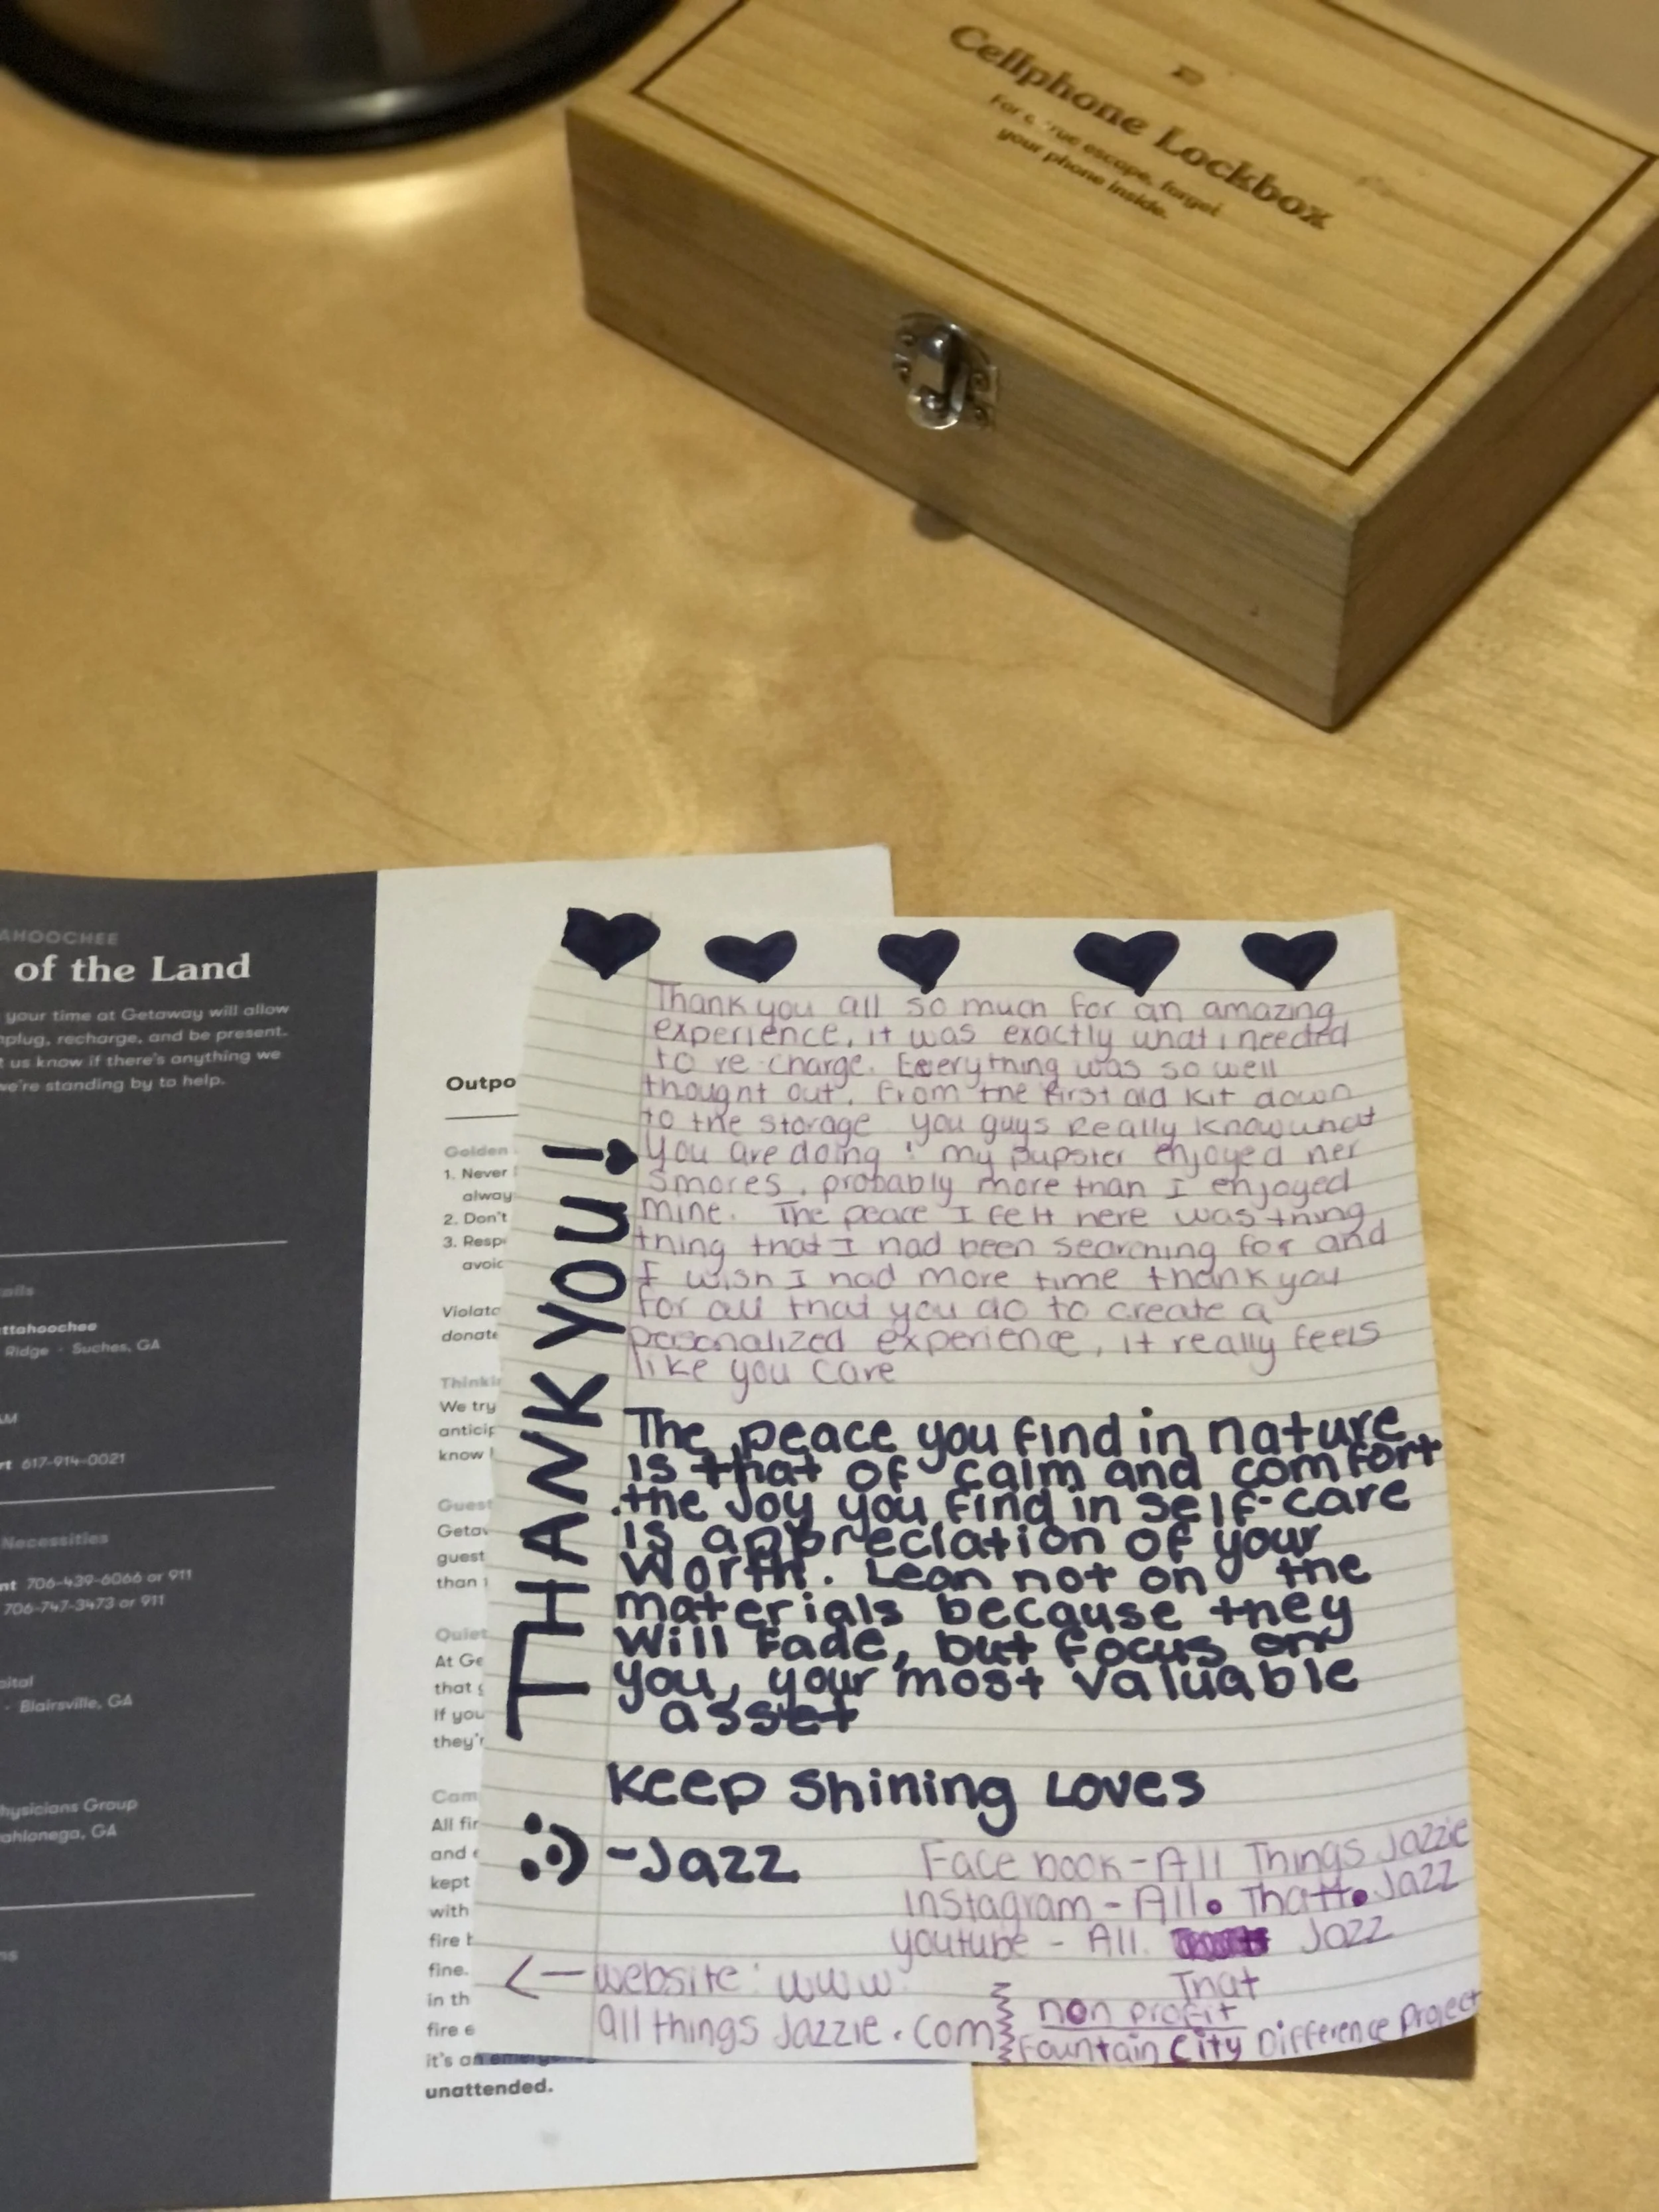 Cellphone Lockbox
For a true escape, forget
your phone inside.
AHOOCHEE
of the Land
your time at Getaway will allow
nplug, recharge, and be present.
t us know if there's anything we
we're standing by to help.
ails
ttahoochee
Ridge - Suches, GA
AM
rt 617-914-0021
Necessities
nt 706-439-6066 or 911
706-747-3473 or 911
pital
- Blairsville, GA
hysicians Group
ahlonega, GA
ns
Outpo
Golden
1. Never
alway
2. Don't
3. Resp
avoid
Violato
donate
Thinkin
We try
anticip
know
Guest
Getaw
guest
than
Quiet
At Ge
that g
If you
they'r
Cam
All fir
and
kept
with
fire b
fine.
in th
fire e
it's an emerge
unattended.
THANK YOU!
Thank you all so much for an amazing
experience, it was exactly what i needed
to re-charge. Eeverything was so well
thought out. From the first aid kit down
to the storage you guys Really know what
you are doing! my pupster enjoyed her
smores, probably more than I enjoyed
mine. The peace I felt here was thing
thing that I had been searching for and
I wish I had more time thank you
for all that you do to create a
personalized experience, it really feels
like you care
The peace you find in nature
is that of calm and comfort
.the Joy you find in self-care
is appreciation of your
Worth. Lean not on the
materials because they
will fade, but focus on
you, your most valuable
asset
Keep Shining Loves
:) -Jazz
Facebook - All Things Jazzie
Instagram - All. Thatt. Jazz
youtube - All. Jazz
That
<— website: www.
all things Jazzie.com
non profit
Fountain City Difference Project